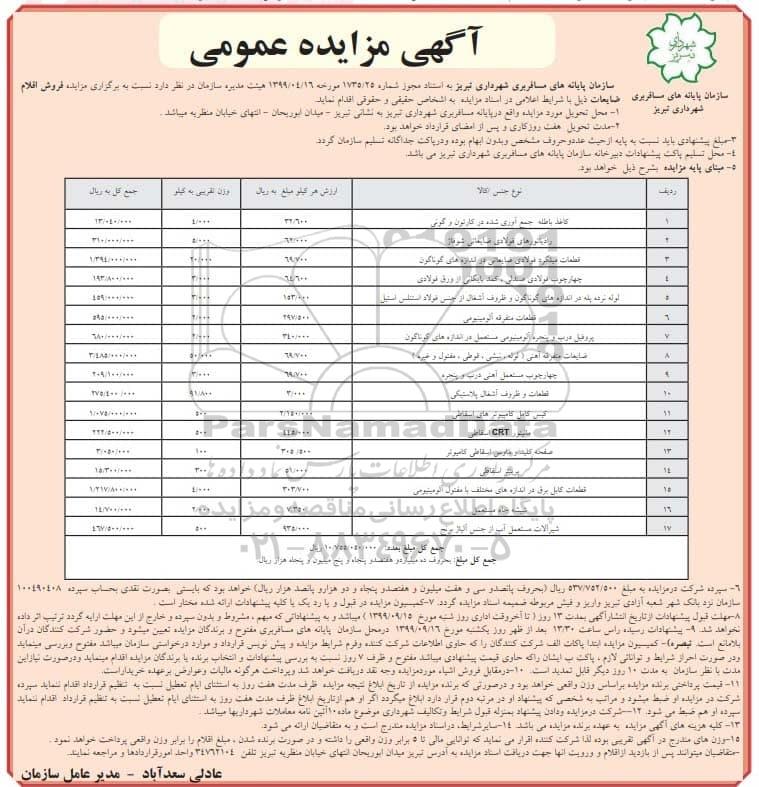 آگهی مزایده عمومی
شهرداری تبریز
سازمان پایانه های مسافربری
شهرداری تبریز
سازمان پایانه های مسافربری شهرداری تبریز به استناد مجوز شماره ۱۷۳۵/۲۵ مورخه ۱۳۹۹/۰۴/۱۶ هیئت مدیره سازمان در نظر دارد نسبت به برگزاری مزایده فروش اقلام
ضایعات ذیل با شرایط اعلامی در اسناد مزایده به اشخاص حقیقی و حقوقی اقدام نماید.
۱- محل تحویل مورد مزایده واقع درپایانه مسافربری شهرداری تبریز به نشانی تبریز - میدان ابوریحان - انتهای خیابان منظریه میباشد .
۲-مدت تحویل هفت روزکاری و پس از امضای قرارداد خواهد بود.
۳-مبلغ پیشنهادی باید نسبت به پایه ازحیث عددوحروف مشخص وبدون ابهام بوده ودرپاکت جداگانه تسلیم سازمان گردد.
۴- محل تسلیم پاکت پیشنهادات دبیرخانه سازمان پایانه های مسافربری شهرداری تبریز می باشد.
۵- مبنای پایه مزایده بشرح ذیل خواهد بود.
ردیف نوع جنس /کالا ارزش هر کیلو مبلغ به ریال وزن تقریبی به کیلو جمع کل به ریال
۱ کاغذ باطله جمع آوری شده در کارتون و گونی ۳۲/۶۰۰ ۴/۰۰۰ ۱۳/۰۴۰/۰۰۰
۲ رادیاتورهای فولادی ضایعاتی شوفاژ ۶۲/۰۰۰ ۵/۰۰۰ ۳۱۰/۰۰۰/۰۰۰
۳ قطعات میلگرد فولادی ضایعاتی در اندازه های گوناگون ۶۹/۷۰۰ ۲۰/۰۰۰ ۱/۳۹۴/۰۰۰/۰۰۰
۴ چهارچوب فولادی صندلی ، کمد بایگانی از ورق فولادی ۶۴/۶۰۰ ۳/۰۰۰ ۱۹۳/۸۰۰/۰۰۰
۵ لوله نرده پله در اندازه های گوناگون و ظروف آشغال از جنس فولاد استنلس استیل ۱۵۳/۰۰۰ ۳/۰۰۰ ۴۵۹/۰۰۰/۰۰۰
۶ قطعات متفرقه آلومینیومی ۲۹۷/۵۰۰ ۲/۰۰۰ ۵۹۵/۰۰۰/۰۰۰
۷ پروفیل درب و پنجره آلومینیومی مستعمل در اندازه های گوناگون ۳۴۰/۰۰۰ ۲/۰۰۰ ۶۸۰/۰۰۰/۰۰۰
۸ ضایعات متفرقه آهنی ( لوله ، نبشی ، قوطی ، مفتول و غیره ) ۶۹/۷۰۰ ۵۰/۰۰۰ ۳/۴۸۵/۰۰۰/۰۰۰
۹ چهارچوب مستعمل آهنی درب و پنجره ۶۹/۷۰۰ ۳/۰۰۰ ۲۰۹/۱۰۰/۰۰۰
۱۰ قطعات و ظروف آشغال پلاستیکی ۳/۰۰۰ ۹۱/۸۰۰ ۲۷۵/۴۰۰/۰۰۰
۱۱ کیس کامل کامپیوتر های اسقاطی ۲/۱۵۰/۰۰۰ ۵۰۰ ۱/۰۷۵/۰۰۰/۰۰۰
۱۲ مانیتور CRT اسقاطی ۴۴۵/۰۰۰ ۵۰۰ ۲۲۲/۵۰۰/۰۰۰
۱۳ صفحه کلید و ماوس اسقاطی کامپیوتر ۳۰۵/۵۰۰ ۱۰۰ ۳/۰۵۰/۰۰۰
۱۴ پرینتر اسقاطی ۵۱/۰۰۰ ۳۰۰ ۱۵/۳۰۰/۰۰۰
۱۵ قطعات کابل برق در اندازه های مختلف با مفتول آلومینیومی ۳۰۳/۷۰۰ ۴/۰۰۰ ۱/۲۱۷/۸۰۰/۰۰۰
۱۶ شیشه جام مستعمل ۷/۳۵۰ ۲/۰۰۰ ۱۴/۷۰۰/۰۰۰
۱۷ شیرآلات مستعمل آب از جنس آلیاژ برنج ۹۳۵/۰۰۰ ۵۰۰ ۴۶۷/۵۰۰/۰۰۰
جمع کل مبلغ بعدد: ۱۰/۷۵۵/۰۵۰/۰۰۰ ریال
جمع کل مبلغ: بحروف ده میلیاردو هفتصدو پنجاه و پنج میلیون و پنجاه هزار ریال
ParsNamadData
مرکز فرآوری اطلاعات پارس نماد داده ها
پایگاه اطلاع رسانی مناقصه و مزایده
۰۲۱-۸۸۳۴۹۶۷۰-۵
۶- سپرده شرکت درمزایده به مبلغ ۵۳۷/۷۵۲/۵۰۰ ریال (بحروف پانصدو سی و هفت میلیون و هفتصدو پنجاه و دو هزارو پانصد هزار ریال) خواهد بود که بایستی بصورت نقدی بحساب سپرده ۱۰۰۴۹۰۴۰۸
سازمان نزد بانک شهر شعبه آزادی تبریز واریز و فیش مربوطه ضمیمه اسناد مزایده گردد. ۷-کمیسیون مزایده در قبول و یا رد یک یا کلیه پیشنهادات ارائه شده مختار است .
۸-مهلت قبول پیشنهادات ازتاریخ انتشارآگهی بمدت ۱۳ روز ( تا آخروقت اداری روز شنبه مورخ ۱۳۹۹/۰۹/۱۵ ) میباشد و به پیشنهاداتی که مبهم ، مشروط و بدون سپرده و خارج از این مهلت ارایه گردد ترتیب اثر داده
نخواهد شد. ۹- پیشنهادات رسیده راس ساعت ۱۳/۳۰ بعد از ظهر روز یکشنبه مورخ ۱۳۹۹/۰۹/۱۶ درمحل سازمان پایانه های مسافربری مفتوح و برندگان مزایده تعیین میشود و حضور شرکت کنندگان درآن
بلامانع است. تبصره)- کمیسیون مزایده ابتدا پاکات الف شرکت کنندگان را که حاوی اطلاعات شرکت کننده وفرم شرایط مزایده و پیش نویس قرارداد و موارد درخواستی سازمان میباشد مفتوح وبررسی مینماید
ودر صورت احراز شرایط و توانائی لازم ، پاکت ب ایشان راکه حاوی قیمت پیشنهادی میباشد مفتوح و ظرف ۷ روز نسبت به بررسی پیشنهادات و انتخاب برنده یا برندگان مزایده اقدام مینماید ودرصورت نیازاین
مدت با نظر سازمان به مدت ۱۰ روز دیگر قابل تمدید است. ۱۰-درمقابل فروش اشیاء موردمزایده وجه نقد دریافت خواهد شد وپرداخت هرگونه مالیات وعوارض برعهده خریداراست.
۱۱- قیمت پرداختی برنده مزایده براساس وزن واقعی خواهد بود و درصورتی که برنده مزایده از تاریخ ابلاغ نتیجه مزایده ظرف مدت هفت روز به استثنای ایام تعطیل نسبت به تنظیم قرارداد اقدام ننماید سپرده
شرکت در مزایده او ضبط میشود و مراتب به شخصی که پیشنهاد او در مرتبه دوم قرار دارد ابلاغ میگردد اگر او هم ازتاریخ ابلاغ ظرف مدت هفت روز به استثنای ایام تعطیل نسبت به تنظیم قرارداد اقدام ننماید
سپرده او هم ضبط می شود. ۱۲-شرکت درمزایده ودادن پیشنهاد بمنزله قبول شرایط وتکالیف شهرداری موضوع ماده۱۰آئین نامه معاملات شهرداریها میباشد .
۱۳- کلیه هزینه های آگهی مزایده به عهده برنده مزایده می باشد. ۱۴-سایرشرایط، دراسناد مزایده مندرج است و به متقاضیان ارائه می شود.
۱۵-وزن های مندرج در آگهی تقریبی بوده لذا شرکت کننده اقرار می نماید که توانایی مالی تا ۵ برابر وزن واقعی را داشته و در صورت برنده شدن ، مبلغ اقلام را برابر وزن واقعی پرداخت خواهد نمود .
-متقاضیان میتوانند پس از بازدید ازاقلام و ورویت انها جهت دریافت اسناد مزایده به آدرس تبریز میدان ابوریحان انتهای خیابان منظریه تبریز تلفن ۳۴۷۶۲۱۰۴ واحد امورقراردادها و مراجعه نمایند.
عادلی سعدآباد - مدیر عامل سازمان